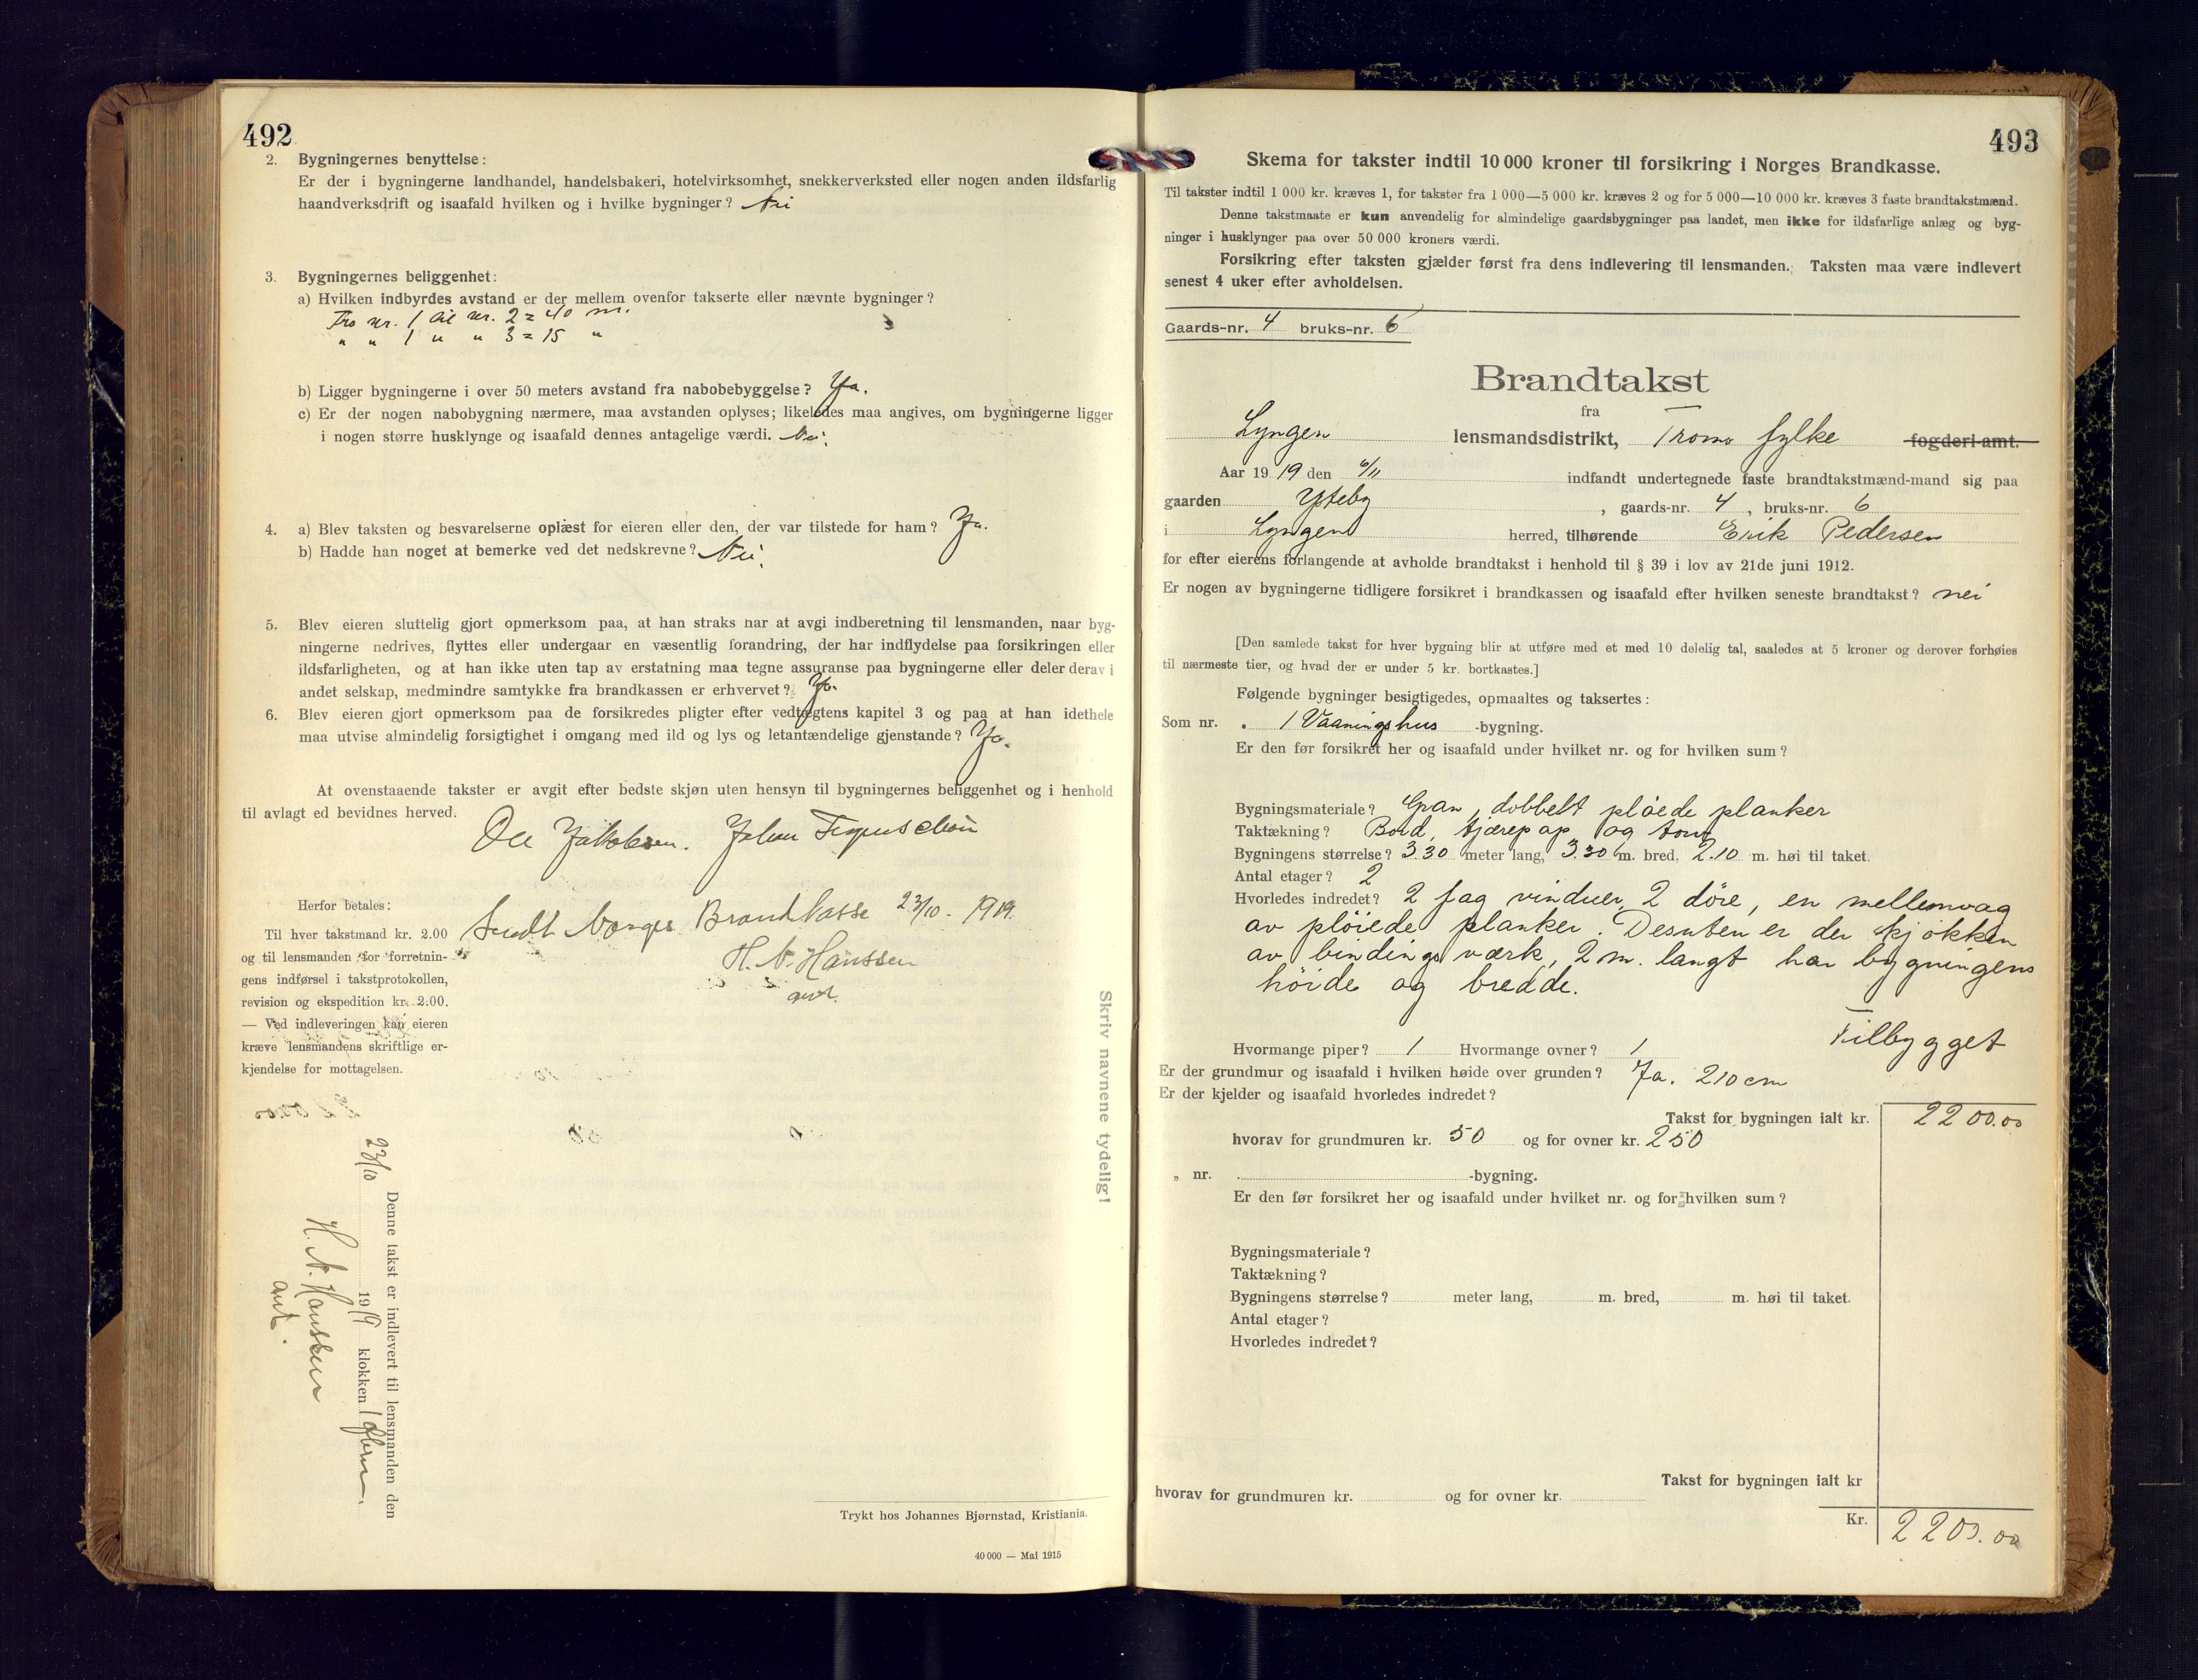 492
2. Bygningernes benyttelse:
Er der i bygningerne landhandel, handelsbakeri, hotelvirksomhet, snekkerverksted eller nogen anden ildsfarlig
haandverksdrift og isaafald hvilken og i hvilke bygninger? Nei
3. Bygningernes beliggenhet:
a) Hvilken indbyrdes avstand er der mellem ovenfor takserte eller nævnte bygninger?
Fra nr. 1 til nr. 2 = 40 m.
" " 1 " " 3 = 15 "
b) Ligger bygningerne i over 50 meters avstand fra nabobebyggelse? Ja.
c) Er der nogen nabobygning nærmere, maa avstanden oplyses; likeledes maa angives, om bygningerne ligger
i nogen større husklynge og isaafald dennes antagelige værdi. Nei.
4. a) Blev taksten og besvarelserne oplæst for eieren eller den, der var tilstede for ham? Ja.
b) Hadde han noget at bemerke ved det nedskrevne? Nei.
5. Blev eieren sluttelig gjort opmerksom paa, at han straks har at avgi indberetning til lensmanden, naar byg-
ningerne nedrives, flyttes eller undergaar en væsentlig forandring, der har indflydelse paa forsikringen eller
ildsfarligheten, og at han ikke uten tap av erstatning maa tegne assuranse paa bygningerne eller deler derav i
andet selskap, medmindre samtykke fra brandkassen er erhvervet? Ja.
6. Blev eieren gjort opmerksom paa de forsikredes pligter efter vedtægtens kapitel 3 og paa at han idethele
maa utvise almindelig forsigtighet i omgang med ild og lys og letantændelige gjenstande? Ja.
At ovenstaaende takster er avgit efter bedste skjøn uten hensyn til bygningernes beliggenhet og i henhold
til avlagt ed bevidnes herved.
Ole Jakobsen. Johan
Herfor betales:
Til hver takstmand kr. 2.00
og til lensmanden for forretnin-
gens indførsel i takstprotokollen,
revision og ekspedition kr. 2.00.
— Ved indleveringen kan eieren
kræve lensmandens skriftlige er-
kjendelse for mottagelsen.
Sendt Norges Brandkasse 23/10 - 1919.
H. N. Hanssen
aut.
Skriv navnene tydelig!
Denne takst er indlevert til lensmanden den
23/10 1919 klokken 1
H. N. Hanssen
aut.
Trykt hos Johannes Bjørnstad, Kristiania.
40 000 — Mai 1915
493
Skema for takster indtil 10 000 kroner til forsikring i Norges Brandkasse.
Til takster indtil 1 000 kr. kræves 1, for takster fra 1 000—5 000 kr. kræves 2 og for 5 000—10 000 kr. kræves 3 faste brandtakstmænd.
Denne takstmaate er kun anvendelig for almindelige gaardsbygninger paa landet, men ikke for ildsfarlige anlæg og byg-
ninger i husklynger paa over 50 000 kroners værdi.
Forsikring efter taksten gjælder først fra dens indlevering til lensmanden. Taksten maa være indlevert
senest 4 uker efter avholdelsen.
Gaards-nr. 4 bruks-nr. 6
Brandtakst
fra
Lyngen lensmandsdistrikt, Troms fylke fogderi-amt.
Aar 1919 den 6/11 indfandt undertegnede faste brandtakstmænd-mand sig paa
gaarden Ytteby, gaards-nr. 4, bruks-nr. 6
i Lyngen herred, tilhørende Erik Pedersen
for efter eierens forlangende at avholde brandtakst i henhold til § 39 i lov av 21de juni 1912.
Er nogen av bygningerne tidligere forsikret i brandkassen og isaafald efter hvilken seneste brandtakst? nei
[Den samlede takst for hver bygning blir at utføre med et med 10 delelig tal, saaledes at 5 kroner og derover forhøies
til nærmeste tier, og hvad der er under 5 kr. bortkastes.]
Følgende bygninger besigtigedes, opmaaltes og taksertes:
Som nr. 1 Vaaningshus -bygning.
Er den før forsikret her og isaafald under hvilket nr. og for hvilken sum?
Bygningsmateriale? Gran, dobbelt pløiede planker
Taktækning? Bord, tjærepap og torv
Bygningens størrelse? 3.30 meter lang, 3.30 m. bred, 2.10 m. høi til taket.
Antal etager? 2
Hvorledes indredet? 2 fag vinduer, 2 döre, en mellemvæg
av plöiede planker. Desuten er der kjökken
av bindingsværk, 2 m. langt har bygningens
höide og bredde.
Tilbygget
Hvormange piper? 1 Hvormange ovner? 1
Er der grundmur og isaafald i hvilken høide over grunden? Ja. 210 cm
Er der kjelder og isaafald hvorledes indredet?
Takst for bygningen ialt kr. 2200.00
hvorav for grundmuren kr. 50 og for ovner kr. 250
„ nr. -bygning.
Er den før forsikret her og isaafald under hvilket nr. og for hvilken sum?
Bygningsmateriale?
Taktækning?
Bygningens størrelse? meter lang, m. bred, m. høi til taket.
Antal etager?
Hvorledes indredet?
Takst for bygningen ialt kr
hvorav for grundmuren kr. og for ovner kr.
Kr. 2200.00